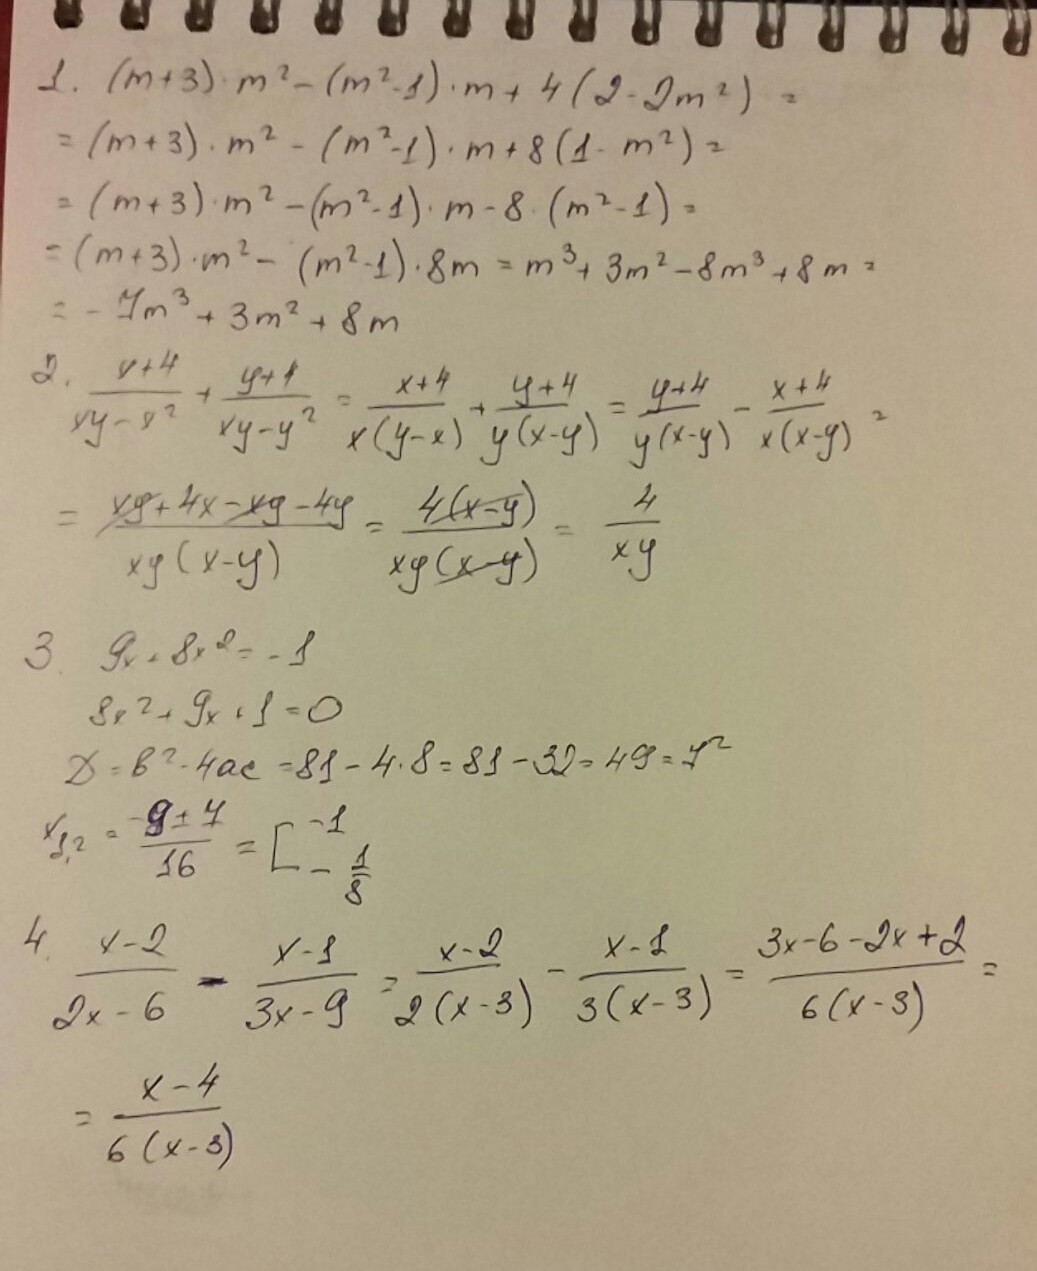 1. (m+3)·m² - (m²-1)·m + 4(2-2m²) =
= (m+3)·m² - (m²-1)·m + 8(1-m²) =
= (m+3)·m² - (m²-1)·m - 8·(m²-1) =
= (m+3)·m² - (m²-1)·8m = m³ + 3m² - 8m³ + 8m =
= -7m³ + 3m² + 8m
2. (x+4)/(xy-x²) + (y+4)/(xy-y²) = (x+4)/(x(y-x)) + (y+4)/(y(x-y)) = (y+4)/(y(x-y)) - (x+4)/(x(x-y)) =
= (xy+4x-xy-4y)/(xy(x-y)) = 4(x-y)/(xy(x-y)) = 4/(xy)
3. 9x + 8x² = -1
8x² + 9x + 1 = 0
D = b² - 4ac = 81 - 4·8 = 81 - 32 = 49 = 7²
x1,2 = (-9±7)/16 = [ -1
- 1/8
4. (x-2)/(2x-6) - (x-1)/(3x-9) = (x-2)/(2(x-3)) - (x-1)/(3(x-3)) = (3x-6-2x+2)/(6(x-3)) =
= (x-4)/(6(x-3))